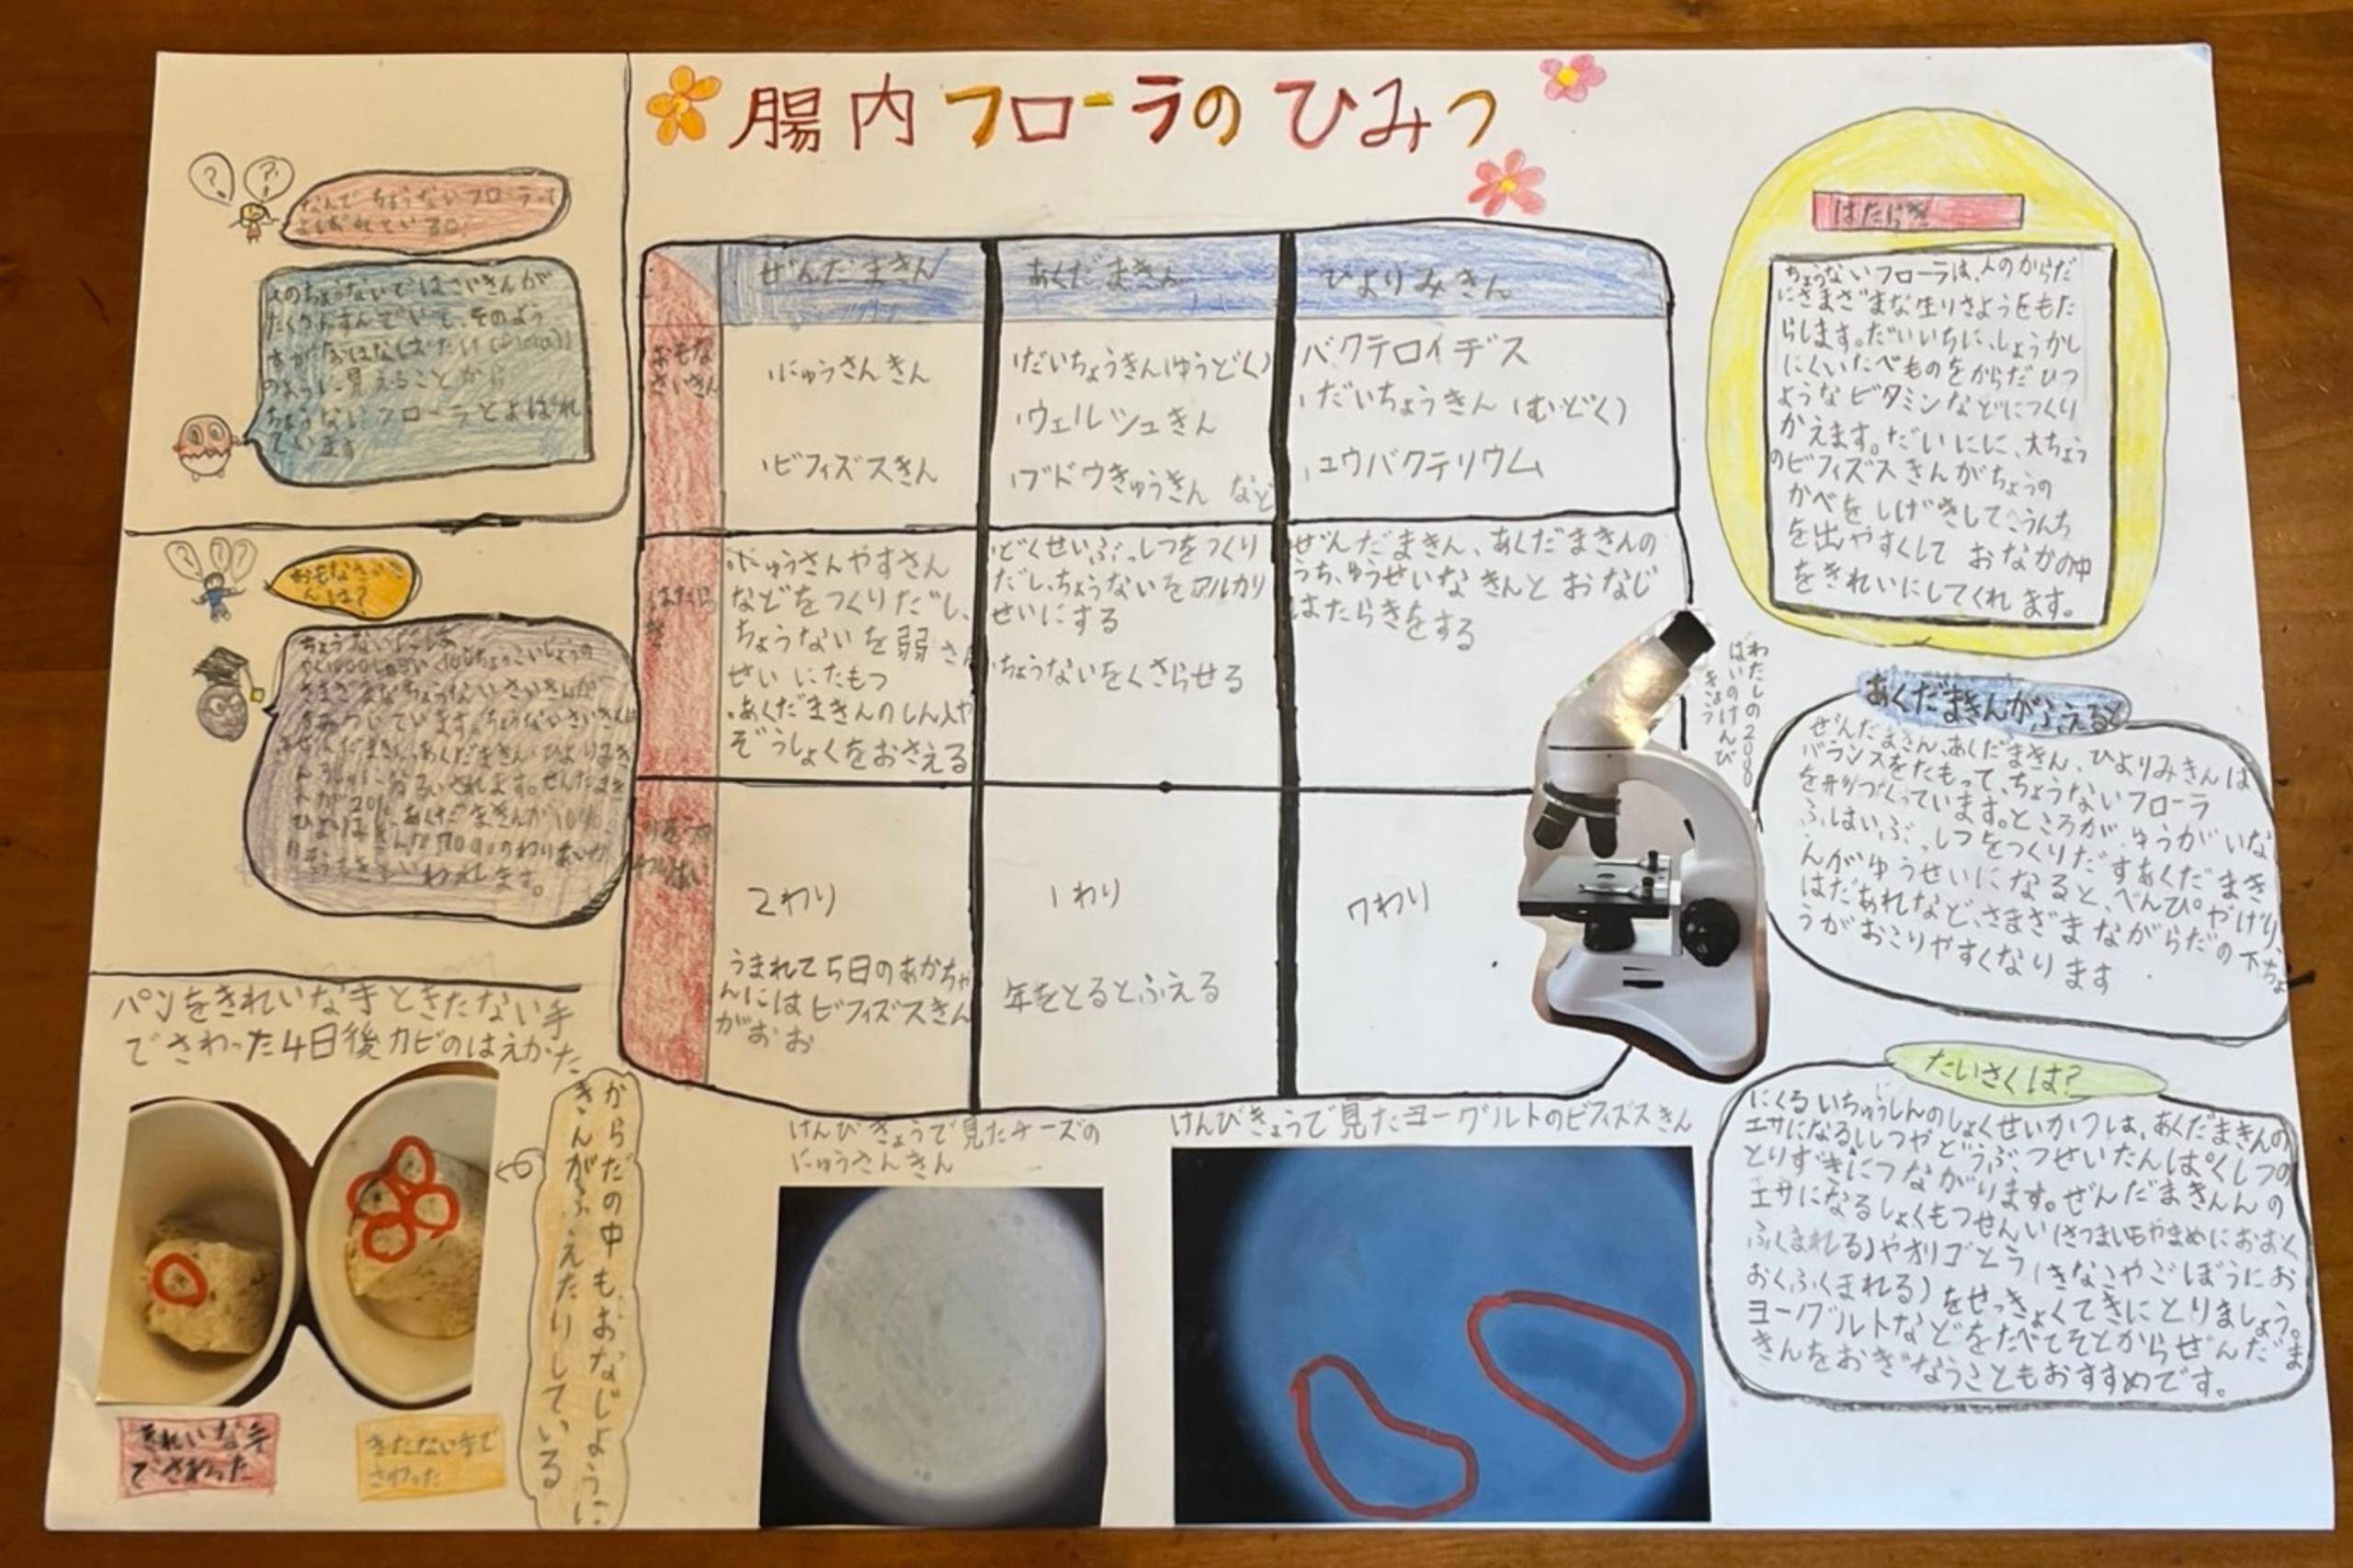 腸内フローラのひみつ
なんでちょうないフローラって
よばれているの?
人のちょうないではさいきんが
たくさんすんでいて、そのよう
すがおはなばたい(
のように見えることから
ちょうないフローラとよばれ
ています
おもなさいき
んは?
ちょうないには
さまざまなちょうないさいきんが
すみついています。ちょうないさいきんは
ぜんだまきん、あくだまきん、ひよりみき
されます。ぜんだまき
んが20%、あくだまきんが10%
わりあいが
いわれます。
ぜんだまきん
あくだまきん
ひよりみきん
おもな
さいきん
・にゅうさんきん
・ビフィズスきん
・だいちょうきん(ゆうどく)
・ウェルシュきん
・ブドウきゅうきん など
バクテロイデス
・だいちょうきん(むどく)
・ユウバクテリウム
はたら
き
・にゅうさんやすさん
などをつくりだし、
ちょうないを弱さん
せいにたもつ
・あくだまきんのしん入や
ぞうしょくをおさえる
・どくせいぶっしつをつくり
だし、ちょうないをアルカリ
せいにする
・ちょうないをくさらせる
ぜんだまきん、あくだまきんの
うち、ゆうせいなきんとおなじ
はたらきをする
2わり
うまれて5日のあかちゃ
んにはビフィズスきん
がおお
1わり
年をとるとふえる
7わり
わたしの2000
ばいのけんび
きょう
はたらき
ちょうないフローラは、人のからだ
にさまざまな生りさようをもた
らします。だいいちに、しょうかし
にくいたべものをからだひつ
ようなビタミンなどにつくり
かえます。だいにに、大ちょう
のビフィズスきんがちょうの
かべをしげきして、うんち
を出やすくして おなかの中
をきれいにしてくれます。
あくだまきんがふえると
ぜんだまきん、あくだまきん、ひよりみきんは
バランスをたもって、ちょうないフローラ
を形づくっています。ところが、ゆうがいな
ふはいぶっしつをつくりだすあくだまき
んがゆうせいになると、べんぴやげり、
はだあれなど、さまざまながらだの下ちょ
うがおこりやすくなります
たいさくは?
にくるいちゅうしんのしょくせいかつは、あくだまきんの
エサになるししつやどうぶつせいたんぱくしつの
とりすぎにつながります。ぜんだまきんんの
エサになるしょくもつせんい(さつまいもやまめにおおく
ふくまれる)やオリゴとう(きなこやごぼうにお
おくふくまれる)をせっきょくてきにとりましょう。
ヨーグルトなどをたべてそとからぜんだま
きんをおぎなうこともおすすめです。
パンをきれいな手ときたない手
でさわった4日後カビのはえかた
からだの中もおなじように
きんがふえたりしている
きれいな手
でさわった
きたない手で
さわった
けんびきょうで見たチーズの
にゅうさんきん
けんびきょうで見たヨーグルトのビフィズスきん